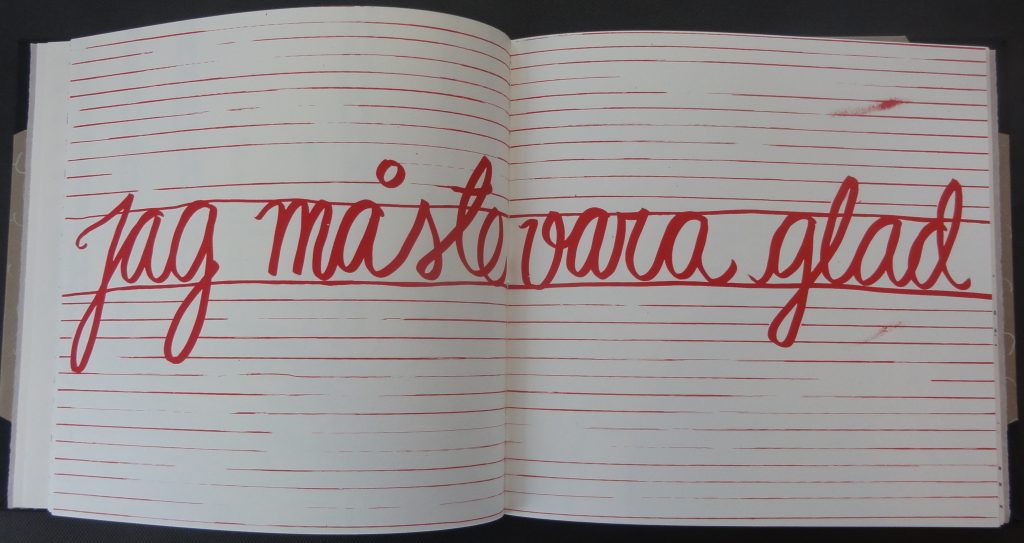 jag måste vara glad